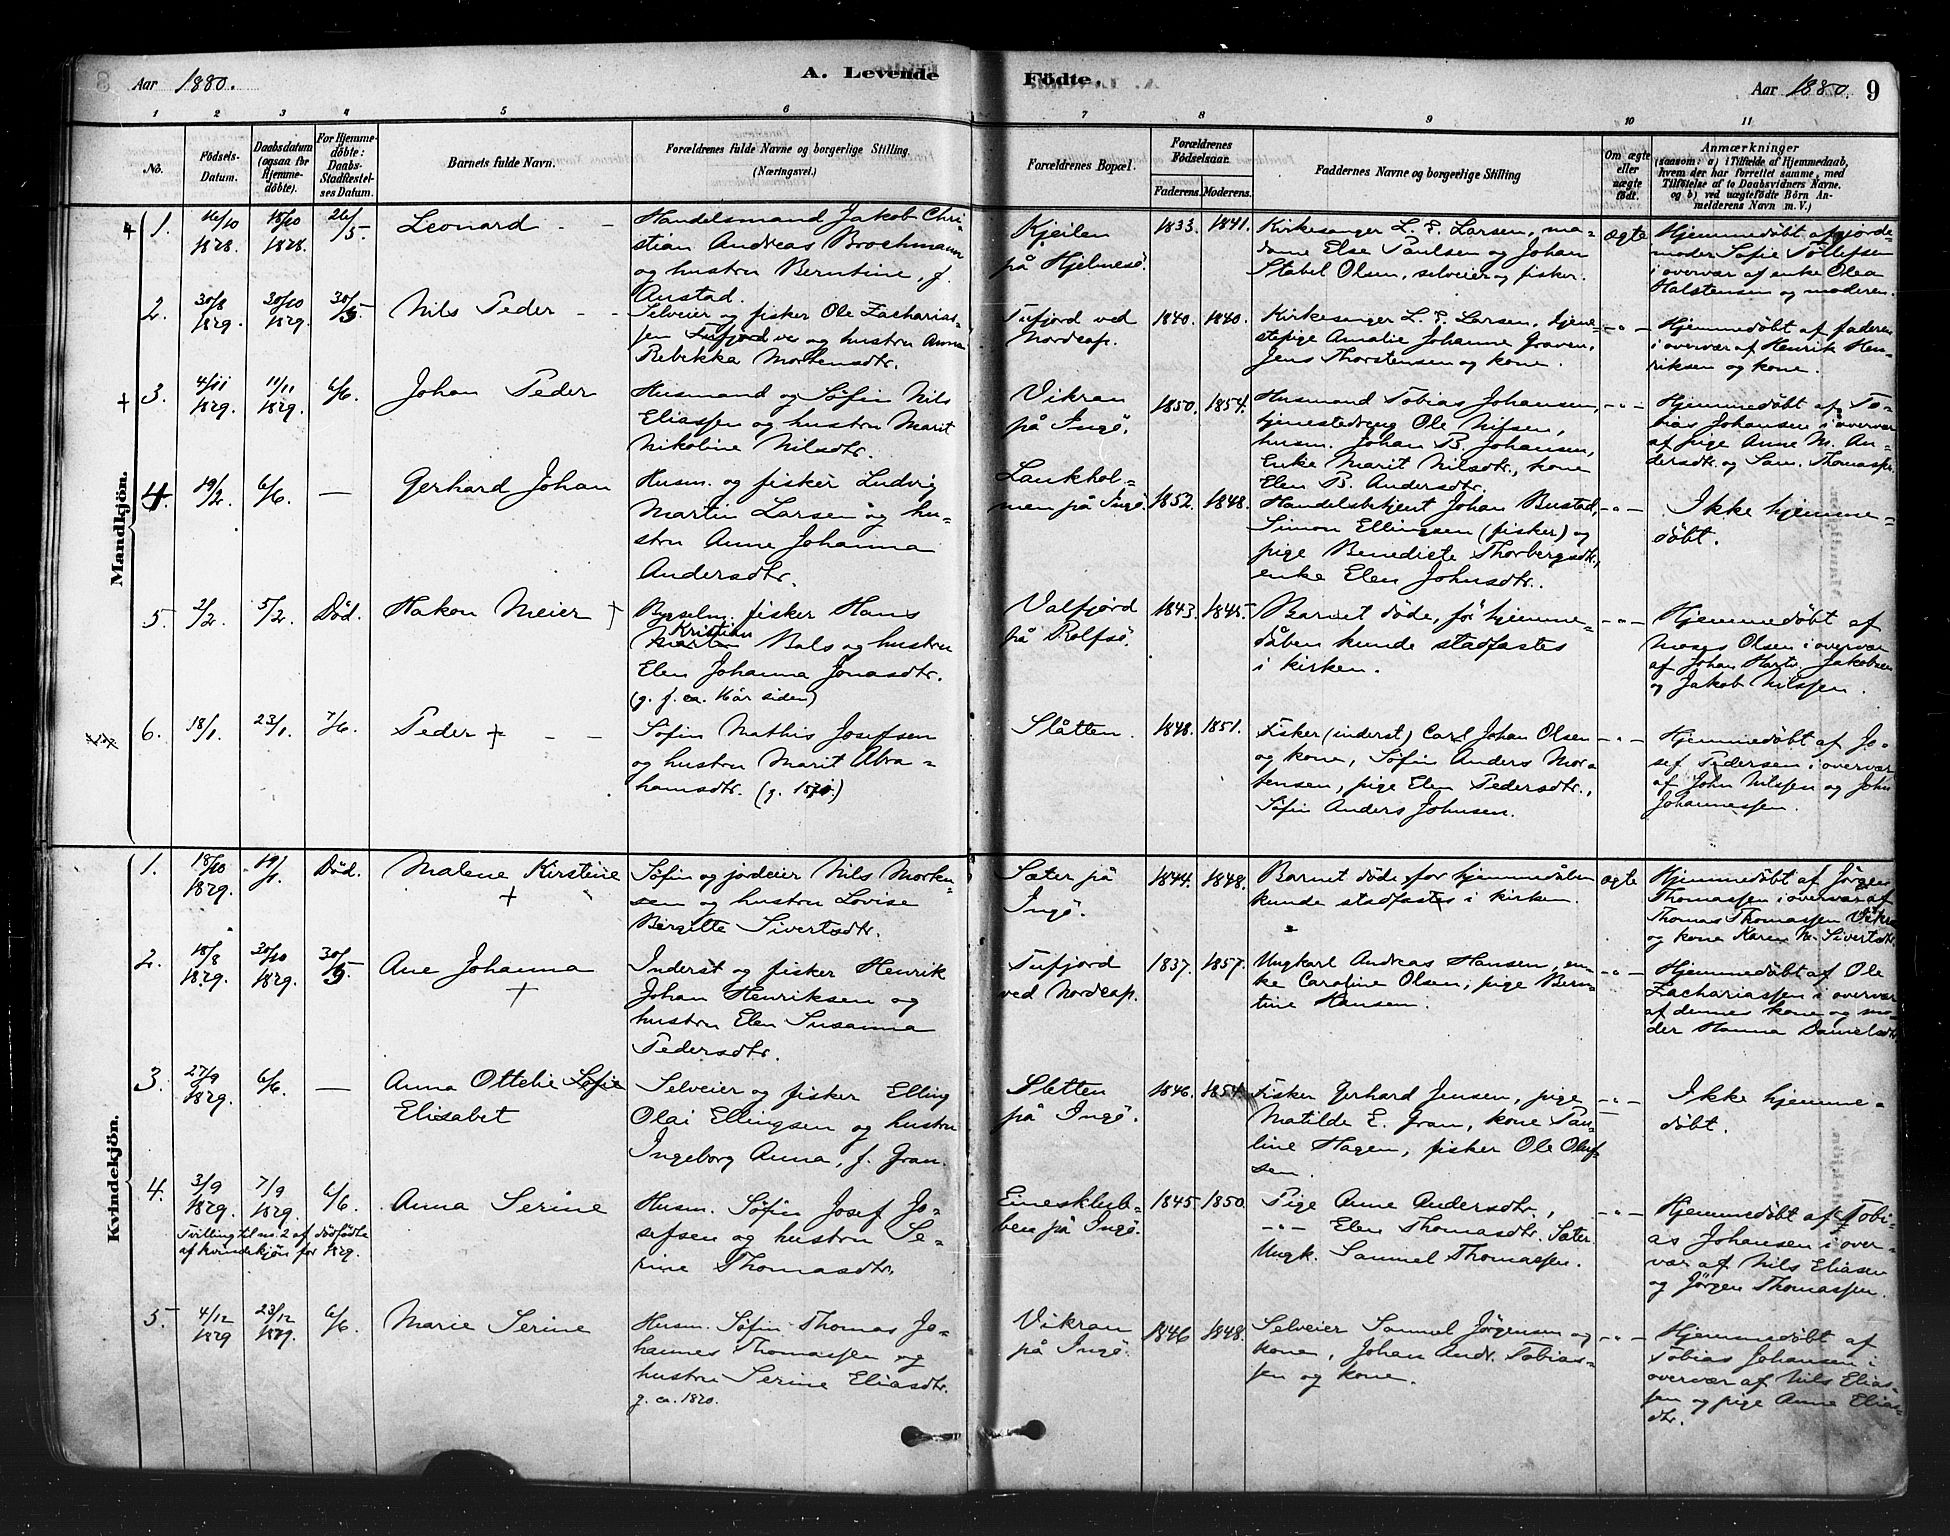 8 Aar 1880. A. Levende
Födte. Aar 1880. 9
1 2 3 4 5 6 7 8 9 10 11
No.
Födsels-
Datum.
Daabsdatum
(ogsaa for
Hjemme-
döbte).
For Hjemme-
döbte:
Daabs-
Stadfæstel-
ses Datum.
Barnets fulde Navn.
Forældrenes fulde Navne og borgerlige Stilling
(Næringsvei.)
Forældrenes Bopæl.
Forældrenes
Födselsaar.
Faderens. Moderens.
Faddernes Navne og borgerlige Stilling
Om ægte
eller
uægte
födt.
Anmærkninger
(saasom: a) i Tilfælde af Hjemmedaab,
hvem der har forrettet samme, med
Tilföielse af to Daabsvidners Navne.
og b) ved uægtefödte Börn An-
melderens Navn m. V.)
Mandkjön.
1. 16/10 1878. 18/10 1878. 26/5. Leonard - -
Handelsmand Jakob Chri-
stian Andreas Brochmann
og hustru Berntine, f.
Anstad.
Kjeilen
på Hjelmesö.
1833. 1841.
Kirkesanger L. P. Larsen, ma-
dame Else Paulsen og Johan
Stabel Olsen, selveier og fisker.
ægte
Hjemmedöbt af gjorde-
moder Sofie Tollefsen
i overvær af enke Olea
Halstensen og moderen.
2. 30/8 1879. 30/10 1879. 30/5. Nils Peder - -
Selveier og fisker Ole Zacharias-
sen Tufjord ve og hustru Anna
Rebekka Mortensdtr.
Tufjord ved
Nordcap.
1840. 1840.
Kirkesanger L. P. Larsen, tjene-
stepige Amalie Johanne Graven,
Jens Thorstensen og kone.
-"-
Hjemmedöbt af faderen
i overvær af Henrik Hen-
riksen og kone.
3. 4/11 1879. 11/11 1879. 6/6. Johan Peder
Husmand og Söfin Nils
Eliassen og hustru Marit
Nikoline Nilsdtr.
Vikran
på Ingö.
1850. 1854.
Husmand Tobias Johansen,
tjenestedreng Ole Nilsen,
husm. Johan B. Johansen,
Enke Marit Nilsdtr., kone
Elen B. Andersdtr.
-"-
Hjemmedöbt af To-
bias Johansen i overvær
af pige Anne M. An-
dersdtr. og Sam. Thomassen.
4. 19/2. 6/6. — Gerhard Johan
Husm. og fisker Ludvig
Martin Larsen og hu-
stru Anne Johanna
Andersdtr.
Lankhol-
men på Ingö.
1852. 1848.
Handelsbetjent Johan Bustad,
Simon Ellingsen (fisker) og
pige Benedicte Thorbergsdtr.,
enke Elen Johnsdtr.
-"-
Ikke hjemme-
döbt.
5. 2/2. 5/2. Död. Hakon Meier †
Bygselm. fisker Hans
Kristian
Bals og hustru
Elen Johanna Jonasdtr.
(g. f. ca. 16 år siden)
Valfjord
på Rolfsö.
1843. 1845.
Barnet döde, för hjemme-
dåben kunde stadfæstes
i kirken.
-"-
Hjemmedöbt af
Moses Olsen i overvær
af Johan Hartv. Jakobsen
og Jakob Nilssen.
6. 18/1. 23/1. 7/6. Peder † - -
Söfin Mathis Josefsen
og hustru Marit Abra-
hamsdtr. (g. 1870.)
Slåtten.
1848. 1851.
Fisker (inderst) Carl Johan Olsen
og kone, Söfin Anders Mor-
tensen, pige Elen Pedersdtr.,
Söfin Anders Johnsen.
-"-
Hjemmedöbt af Jo-
sef Pedersen i overvær
af John Nilssen og John
Johannessen.
Kvindekjön.
1. 18/10 1879. 19/1. Död. Malene Kirstine
†
Söfin og jordeier Nils Morten-
sen og hustru Lovise
Bergitte Sivertsdtr.
Sæter på
Ingö.
1844. 1848.
Barnet döde, for hjemmedåben
kunde stadfæstes i kirken.
ægte
Hjemmedöbt af Jörgen
Thomassen i overvær af
Thomas Thomassen Vikran
og kone Karen B. Sivertsdtr.
2. 18/8 1879. 30/10 1879. 30/5. Ane Johanna
†
Inderst og fisker Henrik
Johan Henriksen og
hustru Elen Susanna
Pedersdtr.
Tufjord
ved Nordcap.
1837. 1857.
Ungkarl Andreas Hansen, en-
ke Caroline Olsen, pige Bern-
tine Hansen.
-"-
Hjemmedöbt af Ole
Zachariassen i overvær
af dennes kone og mo-
der Hanna Danielsdtr.
3. 27/9 1879. 6/6. — Anna Ottelie Sofie
Elisabet
Selveier og fisker Elling
Olai Ellingsen og hustru
Ingeborg Anna, f. Gran.
Sletten
på Ingö.
1846. 1854.
Fisker Gerhard Jensen, pige
Matilde E. Gran, kone Pau-
line Hagen, fisker Ole Oluf-
sen.
-"-
Ikke hjemme-
döbt.
4. 3/9 1879. 7/9 1879. 6/6. Anna Serine
Tvilling til no. 2 af dödfödte
af kvindekjön for 1879.
Husm. Söfin Josef Jo-
sefsen og hustru Se-
rine Thomasdtr.
Eineskhub-
ben på Ingö.
1845. 1850.
Pige Anne Andersdtr.,
-"- Elen Thomasdtr. Sæter.
Ungk. Samuel Thomassen.
-"-
Hjemmedöbt af Tobi-
as Johansen i over-
vær af Nils Eliasen
og Jörgen Thomassen.
5. 4/12 1879 23/12 1879. 6/6. Marie Serine
Husm. Söfin Thomas Jo-
hannes Thomassen og
hustru Serine Eliasdtr.
g. ca. 1870.
Vikran
på Ingö.
1846 1848.
Selveier Samuel Jörgensen og
kone, Johan Andr. Tobias-
sen og kone.
-"-
Hjemmedöbt af
Tobias Johansen i
overvær af Nils Elias-
sen og pige Anne Elias-
dtr.